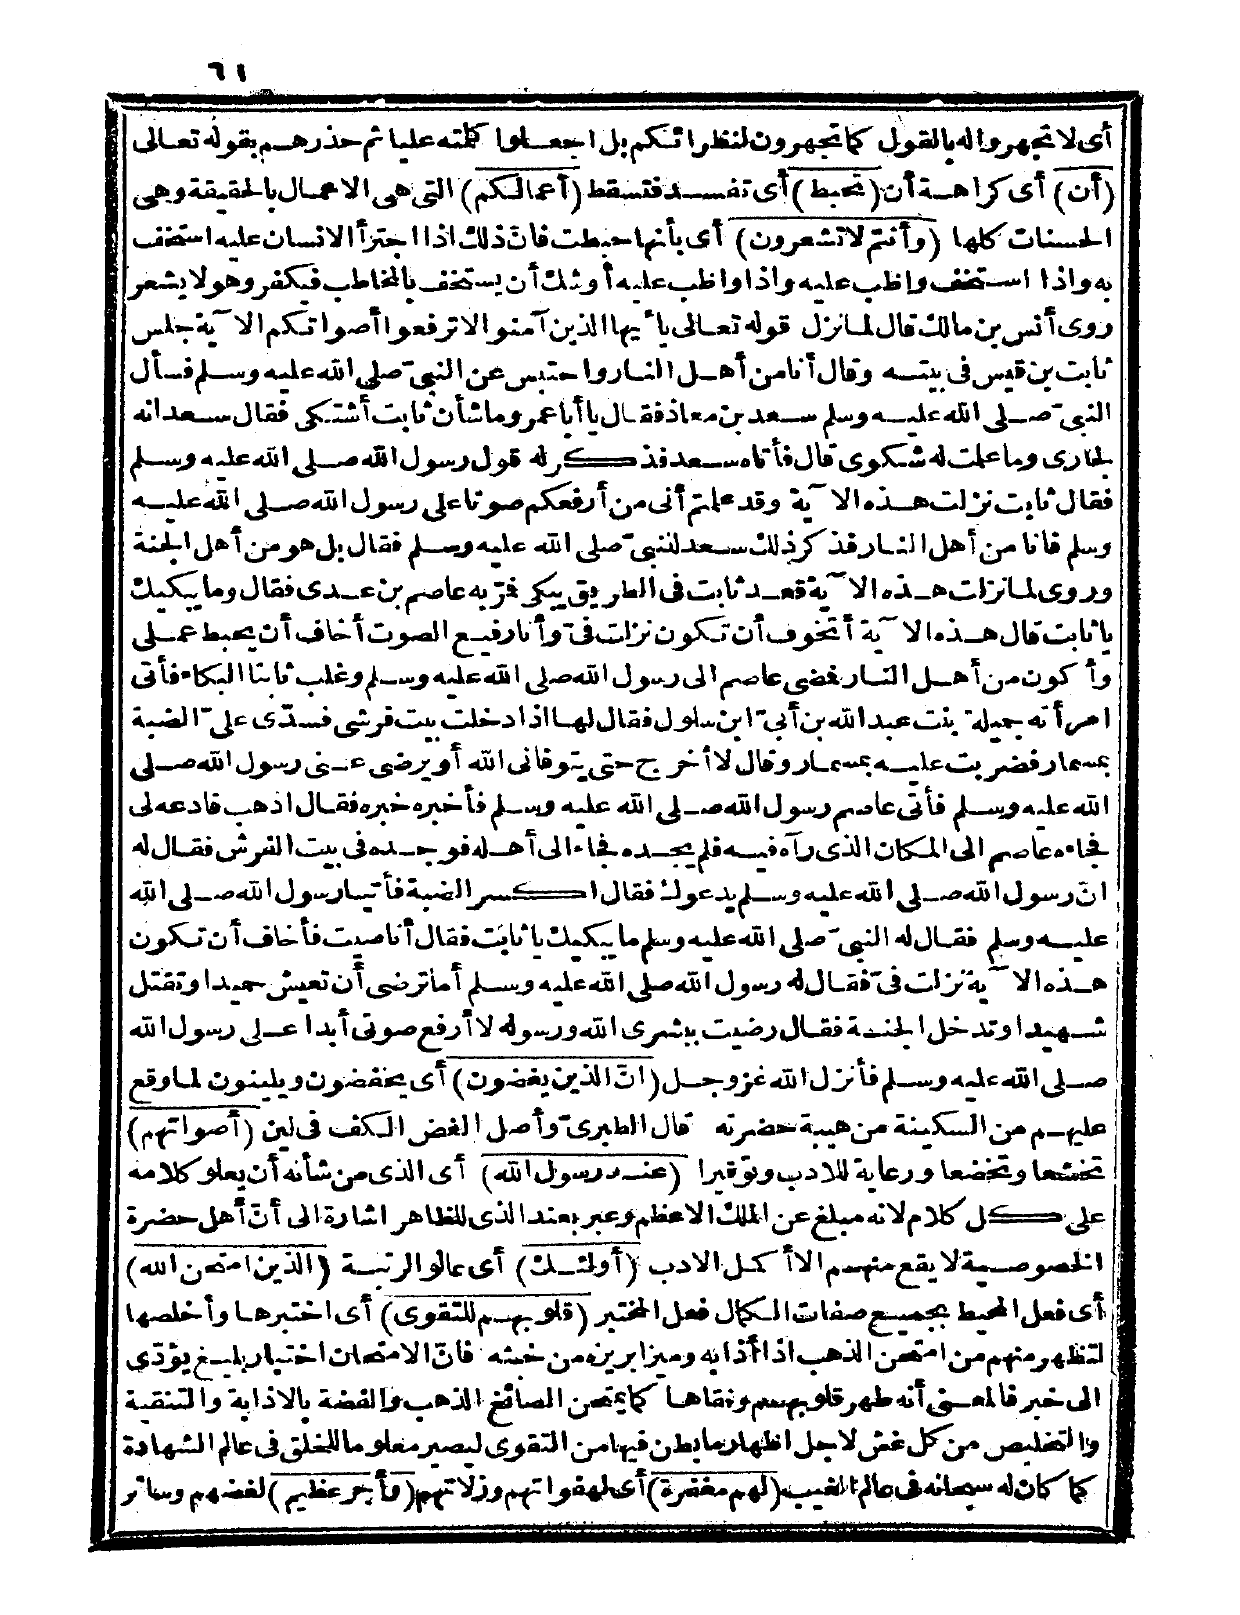 ٦١
أى لا تجهروا له بالقول كما تجهرون لنظرائكم بل اجعلوا كلمته عليا ثم حذرهم بقوله تعالى
(أن) أى كراهة أن (تحبط) أى تفسد فتسقط (أعمالكم) التى هى الاعمال بالحقيقة وهى
الحسنات كلها (وأنتم لا تشعرون) أى بأنها حبطت فانّ ذلك اذا اجترأ الانسان عليه استخف
به واذا استخف واظب عليه واذا واظب عليه أوشك أن يستخف بالمخاطب فيكفر وهو لا يشعر
روى أنس بن مالك قال لما نزل قوله تعالى يا أيها الذين آمنوا لا ترفعوا أصواتكم الآية جلس
ثابت بن قيس فى بيته وقال أنا من أهل النار واحتبس عن النبىّ صلى الله عليه وسلم فسأل
النبىّ صلى الله عليه وسلم سعد بن معاذ فقال يا أبا عمرو ما شأن ثابت أشتكى فقال سعد انه
لجارى وما علمت له شكوى قال فأتاه سعد فذكر له قول رسول الله صلى الله عليه وسلم
فقال ثابت نزلت هذه الآية وقد علمتم أنى من أرفعكم صوتا على رسول الله صلى الله عليه
وسلم فانا من أهل النار فذكر ذلك سعد للنبىّ صلى الله عليه وسلم فقال بل هو من أهل الجنة
وروى لما نزلت هذه الآية قعد ثابت فى الطريق يبكى فمرّ به عاصم بن عدى فقال وما يبكيك
يا ثابت قال هذه الآية أتخوف أن تكون نزلت فىّ وأنا رفيع الصوت أخاف أن يحبط عملى
وأكون من أهل النار فمضى عاصم الى رسول الله صلى الله عليه وسلم وغلب ثابتا البكاء فأتى
امرأته جميلة بنت عبد الله بن أبىّ ابن سلول فقال لها اذا دخلت بيت فرشى فسدّى علىّ الضبة
بمسمار فضربت عليه بمسمار وقال لا أخرج حتى يتوفانى الله أو يرضى عنى رسول الله صلى
الله عليه وسلم فأتى عاصم رسول الله صلى الله عليه وسلم فأخبره خبره فقال اذهب فادعه لى
فجاءه عاصم الى المكان الذى رآه فيه فلم يجده فجاء الى أهله فوجده فى بيت الفرش فقال له
انّ رسول الله صلى الله عليه وسلم يدعوك فقال اكسر الضبة فأتيا رسول الله صلى الله
عليه وسلم فقال له النبىّ صلى الله عليه وسلم ما يبكيك يا ثابت فقال أنا صيت فأخاف أن تكون
هذه الآية نزلت فىّ فقال له رسول الله صلى الله عليه وسلم أما ترضى أن تعيش حميدا وتقتل
شهيدا وتدخل الجنة فقال رضيت ببشرى الله ورسوله لا أرفع صوتى أبدا على رسول الله
صلى الله عليه وسلم فأنزل الله عز وجل (انّ الذين يغضون) أى يخفضون ويلينون لما وقع
عليهم من السكينة من هيبة حضرته قال الطبرىّ وأصل الغض الكف فى لين (أصواتهم)
تخشعا وتخضعا ورعاية للادب وتوقيرا (عند رسول الله) أى الذى من شأنه أن يعلو كلامه
على كل كلام لانه مبلغ عن الملك الاعظم وعبر بعند الذى للظاهر اشارة الى أنّ أهل حضرة
الخصوصية لا يقع منهم الا أكمل الادب (أولئك) أى عالو الرتبة (الذين امتحن الله)
أى فعل المحيط بجميع صفات الكمال فعل المختبر (قلوبهم للتقوى) أى اختبرها وأخلصها
لتظهر منهم من امتحن الذهب اذا أذابه وميز ابريزه من خبثه فانّ الامتحان اختبار بليغ يؤدّى
الى خبر فالمعنى أنه طهر قلوبهم ونقاها كما يمتحن الصائغ الذهب والفضة بالاذابة والتنقية
والتخليص من كل غش لاجل اظهار ما بطن فيها من التقوى ليصير معلوما للخلق فى عالم الشهادة
كما كان له سبحانه فى عالم الغيب (لهم مغفرة) أى لهفواتهم وزلاتهم (وأجر عظيم) لغضهم وسائر